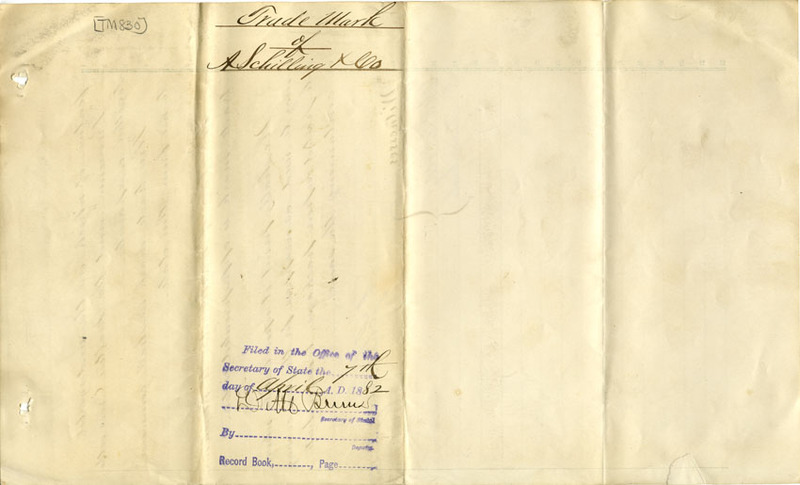 [TM830]
Trade Mark
of
A Schilling & Co
Filed in the Office of the
Secretary of State the 7th
day of April A. D. 1882
D M Burns
Secretary of State
By
Deputy.
Record Book, Page